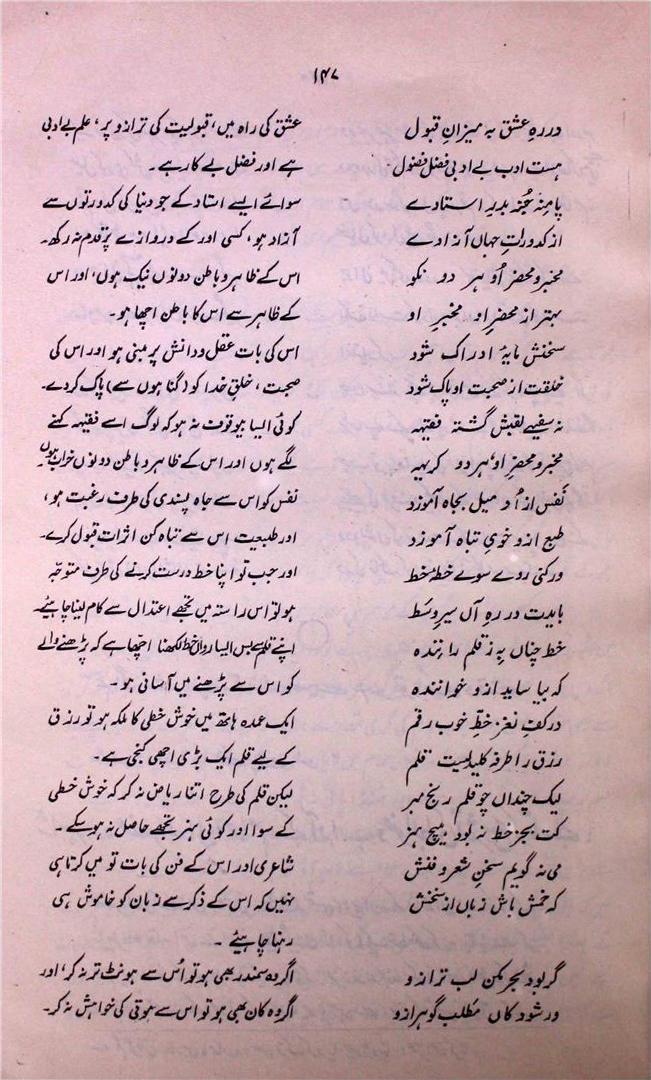 ۱۴۷
در رہِ عشق بہ میزانِ قبول
عشق کی راہ میں، قبولیت کی ترازو پر، علم بے ادبی
ہست ادب بے ادبی فضل فضول
ہے اور فضل بے کار ہے۔
پا منہ جُز بدرِ استادے
سوائے ایسے استاد کے جو دنیا کی کدورتوں سے
از کدورتِ جہاں آزادے
آزاد ہو، کسی اور کے دروازے پر قدم نہ رکھ۔
مخبر و محضرِ اُو ہر دو نکو
اس کے ظاہر و باطن دونوں نیک ہوں، اور اس
بہتر از محضرِ او مخبرِ او
کے ظاہر سے اس کا باطن اچھا ہو۔
سخنش مایۂ ادراک شود
اس کی بات عقل و دانش پر مبنی ہو اور اس کی
خلقت از صحبتِ او پاک شود
صحبت، خلقِ خدا کو (گناہوں سے) پاک کردے۔
نہ سفیہے لقبش گشتہ فقیہہ
کوئی ایسا بیوقوف نہ ہو کہ لوگ اسے فقیہہ کہنے
مخبر و محضرِ اُو ہر دو کریہہ
لگے ہوں اور اس کے ظاہر و باطن دونوں خراب ہوں۔
نَفس از اُو میل بجاہ آموزد
نفس کو اس سے جاہ پسندی کی طرف رغبت ہو،
طبع ازو خویِ تباہ آموزد
اور طبیعت اس سے تباہ کن اثرات قبول کرے۔
ور کنی روے سوے خطۂ خط
اور جب تو اپنا خط درست کرنے کی طرف متوجّہ
بایدت در رہِ آں سیرِ وسَط
ہو تو اس راستہ میں تجھے اعتدال سے کام لینا چاہیئے۔
خط چناں بہ ز قلم رانندہ
اپنے قلم سے بس ایسا رواں خط لکھنا اچھا ہے کہ پڑھنے والے
کہ بیاساید ازو خوانندہ
کو اس سے پڑھنے میں آسانی ہو۔
در کفِ نغز خطِّ خوب رقم
ایک عمدہ ہاتھ میں خوش خطی کا ملکہ ہو تو رزق
رزق را طرفہ کلیدیست قلم
کے لیے قلم ایک بڑی اچھی کنجی ہے۔
لیک چنداں چو قلم رنج مبر
لیکن قلم کی طرح اتنا ریاض نہ کر کہ خوش خطی
کت بجز خط نہ بود ہیچ ہنر
کے سوا اور کوئی ہنر تجھے حاصل نہ ہوسکے۔
می نہ گویم سخنِ شعر و فنش
شاعری اور اس کے فن کی بات تو میں کرتا ہی
کہ خمش باش زباں از سخنش
نہیں کہ اس کے ذکر سے زبان کو خاموش ہی
رہنا چاہیئے۔
گر بود بحر مکن لب تر ازو
اگر وہ سمندر بھی ہو تو اُس سے ہونٹ تر نہ کر، اور
ور شود کاں مطلب گوہر ازو
اگر وہ کان بھی ہو تو اس سے موتی کی خواہش نہ کر۔